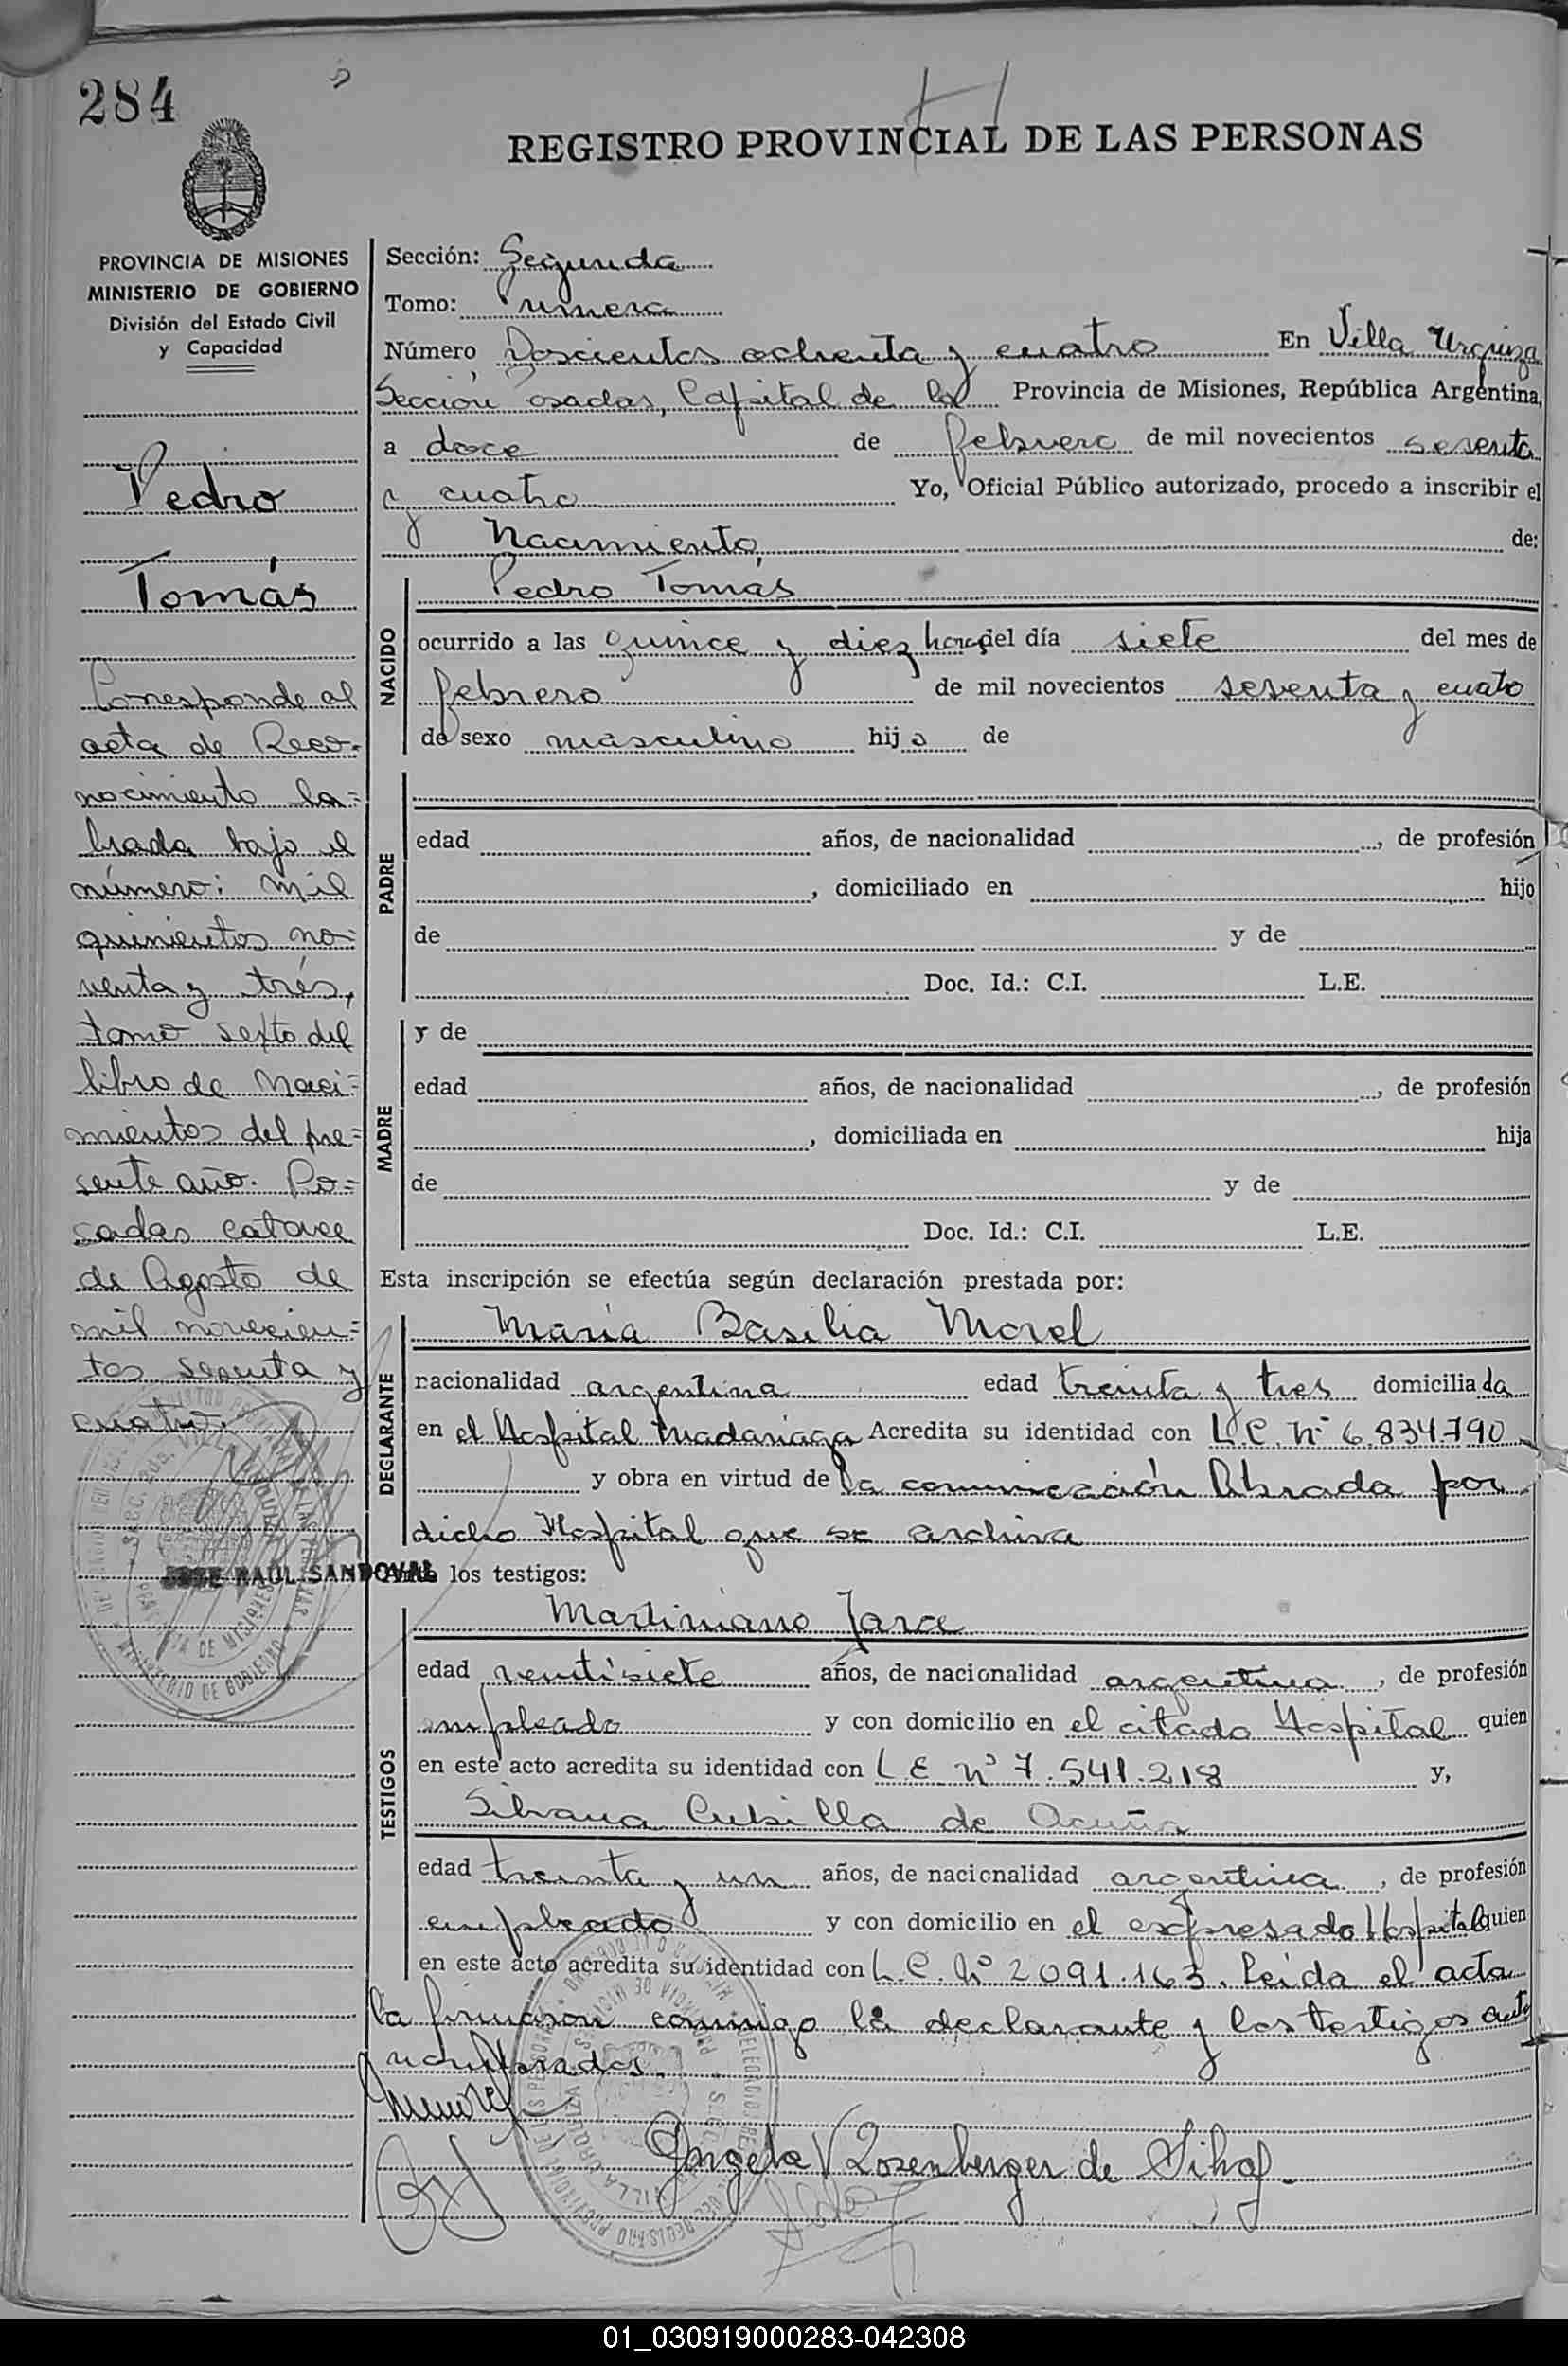 284
REGISTRO PROVINCIAL DE LAS PERSONAS
PROVINCIA DE MISIONES
MINISTERIO DE GOBIERNO
División del Estado Civil
y Capacidad
Pedro
Tomás
Corresponde al
acta de Reco-
nocimiento la=
brada bajo el
número: mil
quinientos no-
venta y trés,
tomo sexto del
libro de Naci=
mientos del pre=
sente año. Po=
sadas catorce
de Agosto de
mil novecien=
tos sesenta y
cuatro.
JOSE RAUL SANDOVAL
Sección: Segunda
Tomo: Primera
Número Doscientos ochenta y cuatro En Villa Urquiza
Sección osadas, Capital de la Provincia de Misiones, República Argentina,
a doce de febrero de mil novecientos sesenta
y cuatro Yo, Oficial Público autorizado, procedo a inscribir el
Nacimiento de:
NACIDO
Pedro Tomás
ocurrido a las quince y diez horas del día siete del mes de
febrero de mil novecientos sesenta y cuatro
de sexo masculino hijo de
PADRE
edad años, de nacionalidad , de profesión
, domiciliado en hijo
de y de
Doc. Id.: C.I. L.E.
MADRE
y de
edad años, de nacionalidad , de profesión
, domiciliada en hija
de y de
Doc. Id.: C.I. L.E.
Esta inscripción se efectúa según declaración prestada por:
DECLARANTE
Maria Basilia Morel
nacionalidad argentina edad treinta y tres domiciliada
en el Hospital Madariaga Acredita su identidad con L.C. Nº 6.834.790
y obra en virtud de la comunicación librada por
dicho Hospital que se archiva
los testigos:
TESTIGOS
Martiniano Jara
edad ventisiete años, de nacionalidad argentina, de profesión
empleado y con domicilio en el citado Hospital quien
en este acto acredita su identidad con L.E. nº 7.541.218 y,
Silvana Cubilla de Acuña
edad treinta y un años, de nacionalidad argentina, de profesión
empleado y con domicilio en el expresado Hospital quien
en este acto acredita su identidad con L.C. Nº 2091.163. Leída el acta
la firmaron conmigo la declarante y los testigos ante
nombrados.
Angela V Rosenberger de
01_030919000283-042308